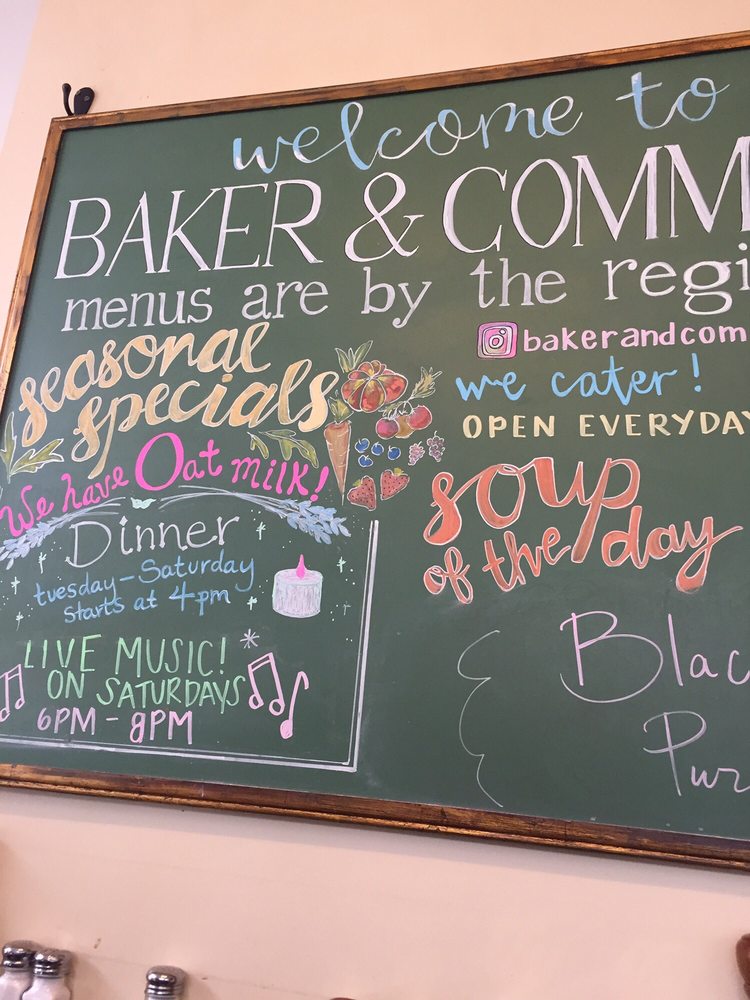 welcome to
BAKER & COMM
menus are by the regi
bakerandcom
we cater!
OPEN EVERYDAY
seasonal
specials
We have Oat milk!
Dinner
tuesday-Saturday
starts at 4pm
LIVE MUSIC!
ON SATURDAYS
6PM - 8PM
soup
of the day
Blac
Pur